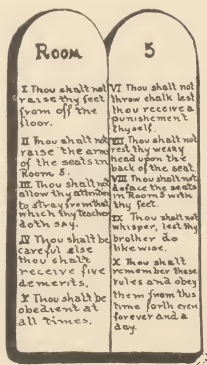 Room 5
I Thou shalt not
raise thy feet
from off the
floor.
II Thou shalt not
raise the arms
of the seats in
Room 5.
III Thou shalt not
allow thy attention
to stray from that
which thy teacher
doth say.
IV Thou shalt be
careful else
thou shalt
receive five
demerits.
V Thou shalt be
obedient at
all times.
VI Thou shalt not
throw chalk lest
thou receive a
punishement
thyself.
VII Thou shalt not
rest thy weary
head upon the
back of the seat.
VIII Thou shalt not
deface the seats
in Room 5 with
thy feet.
IX Thou shalt not
whisper, lest thy
brother do
likewise.
X Thou shalt
remember these
rules and obey
them from this
time forth even
forever and a
day.